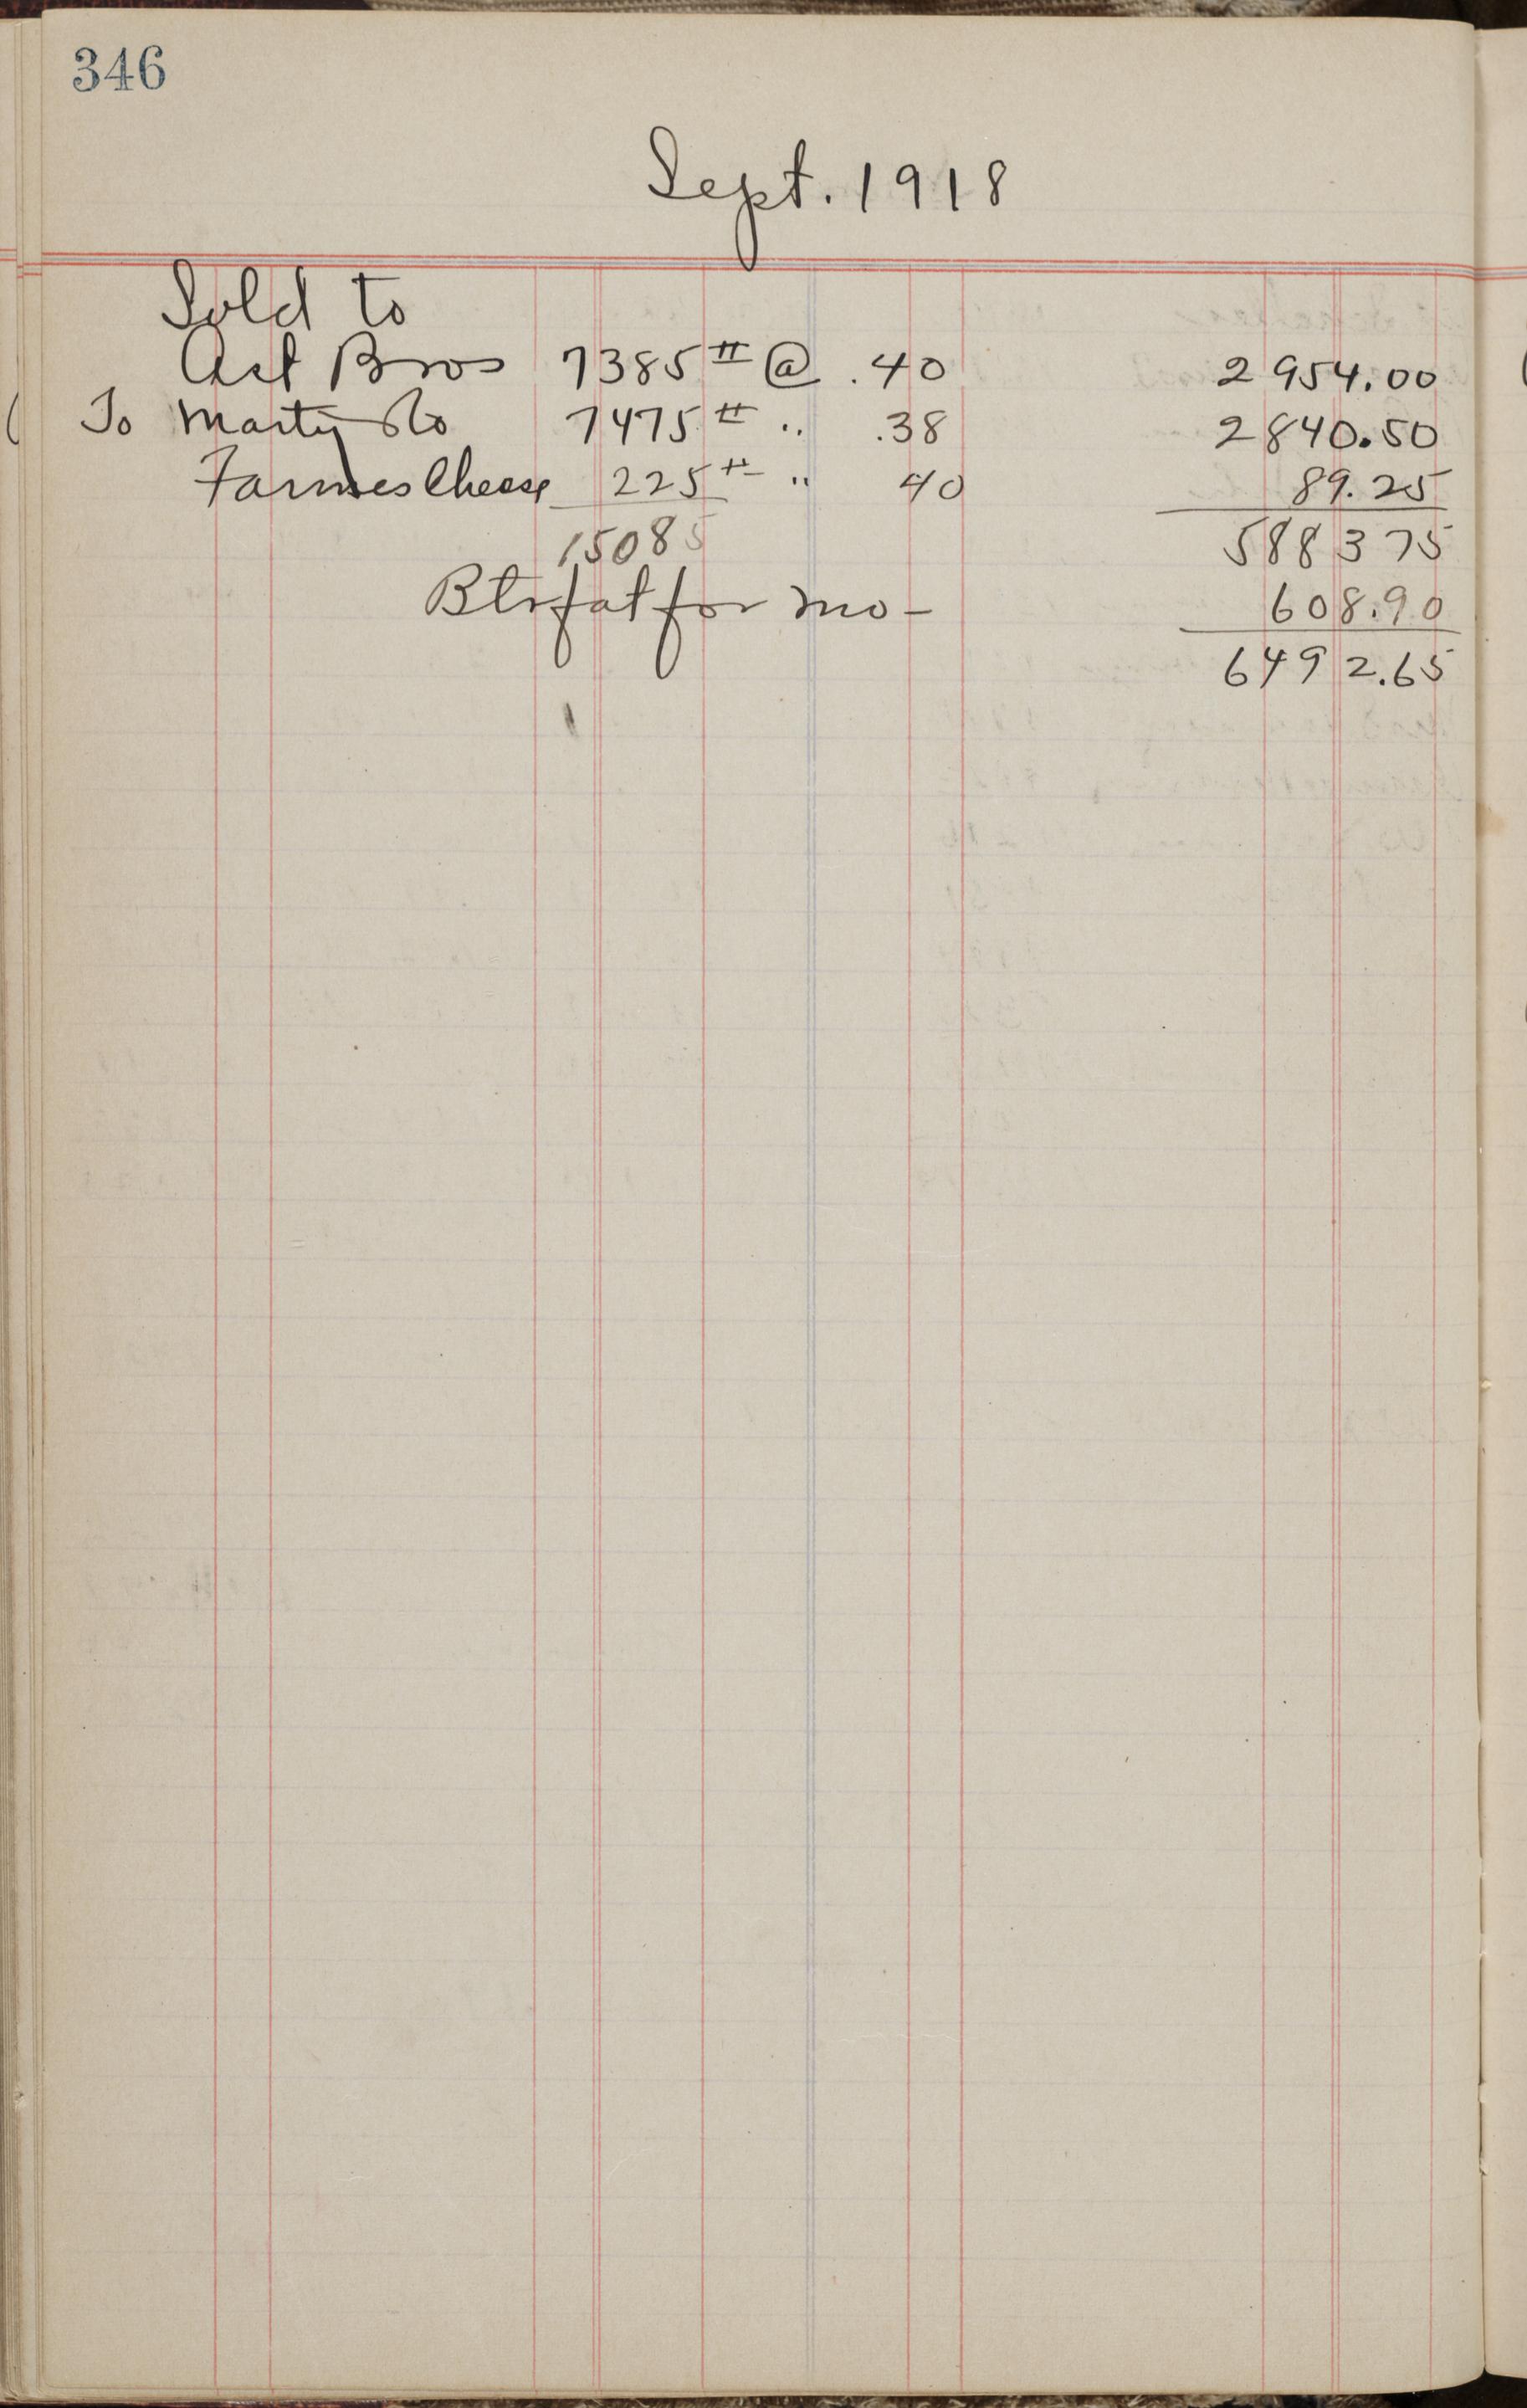 346
Sept. 1918
Sold to
Ast Bros 7385# @ .40 2954.00
To Marty Co 7475# " .38 2840.50
Farmes Cheese 225# " 40 89.25
15085 588375
Btrfat for mo- 608.90
6492.65